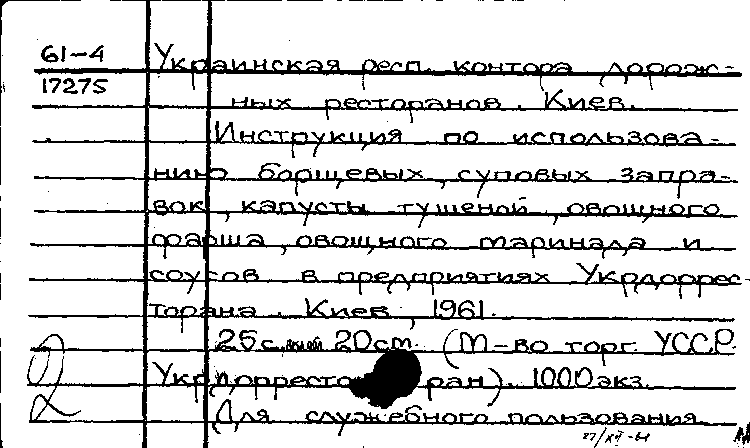 61-4
17275
Украинская респ. контора дорож-
ных ресторанов. Киев.
Инструкция по использова-
нию борщевых, суповых запра-
вок, капусты тушеной, овощного
фарша, овощного маринада и
соусов в предприятиях Укрдоррес-
торана. Киев, 1961.
25с. 20см. (М-во торг. УССР.
Укрдорресторан). 1000экз.
Для служебного пользования